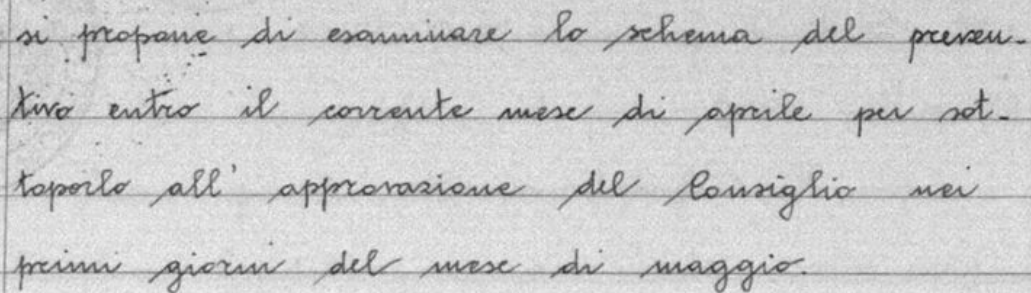 si propone di esaminare lo schema del preven-
tivo entro il corrente mese di aprile per sot-
toporlo all' approvazione del Consiglio nei
primi giorni del mese di maggio.